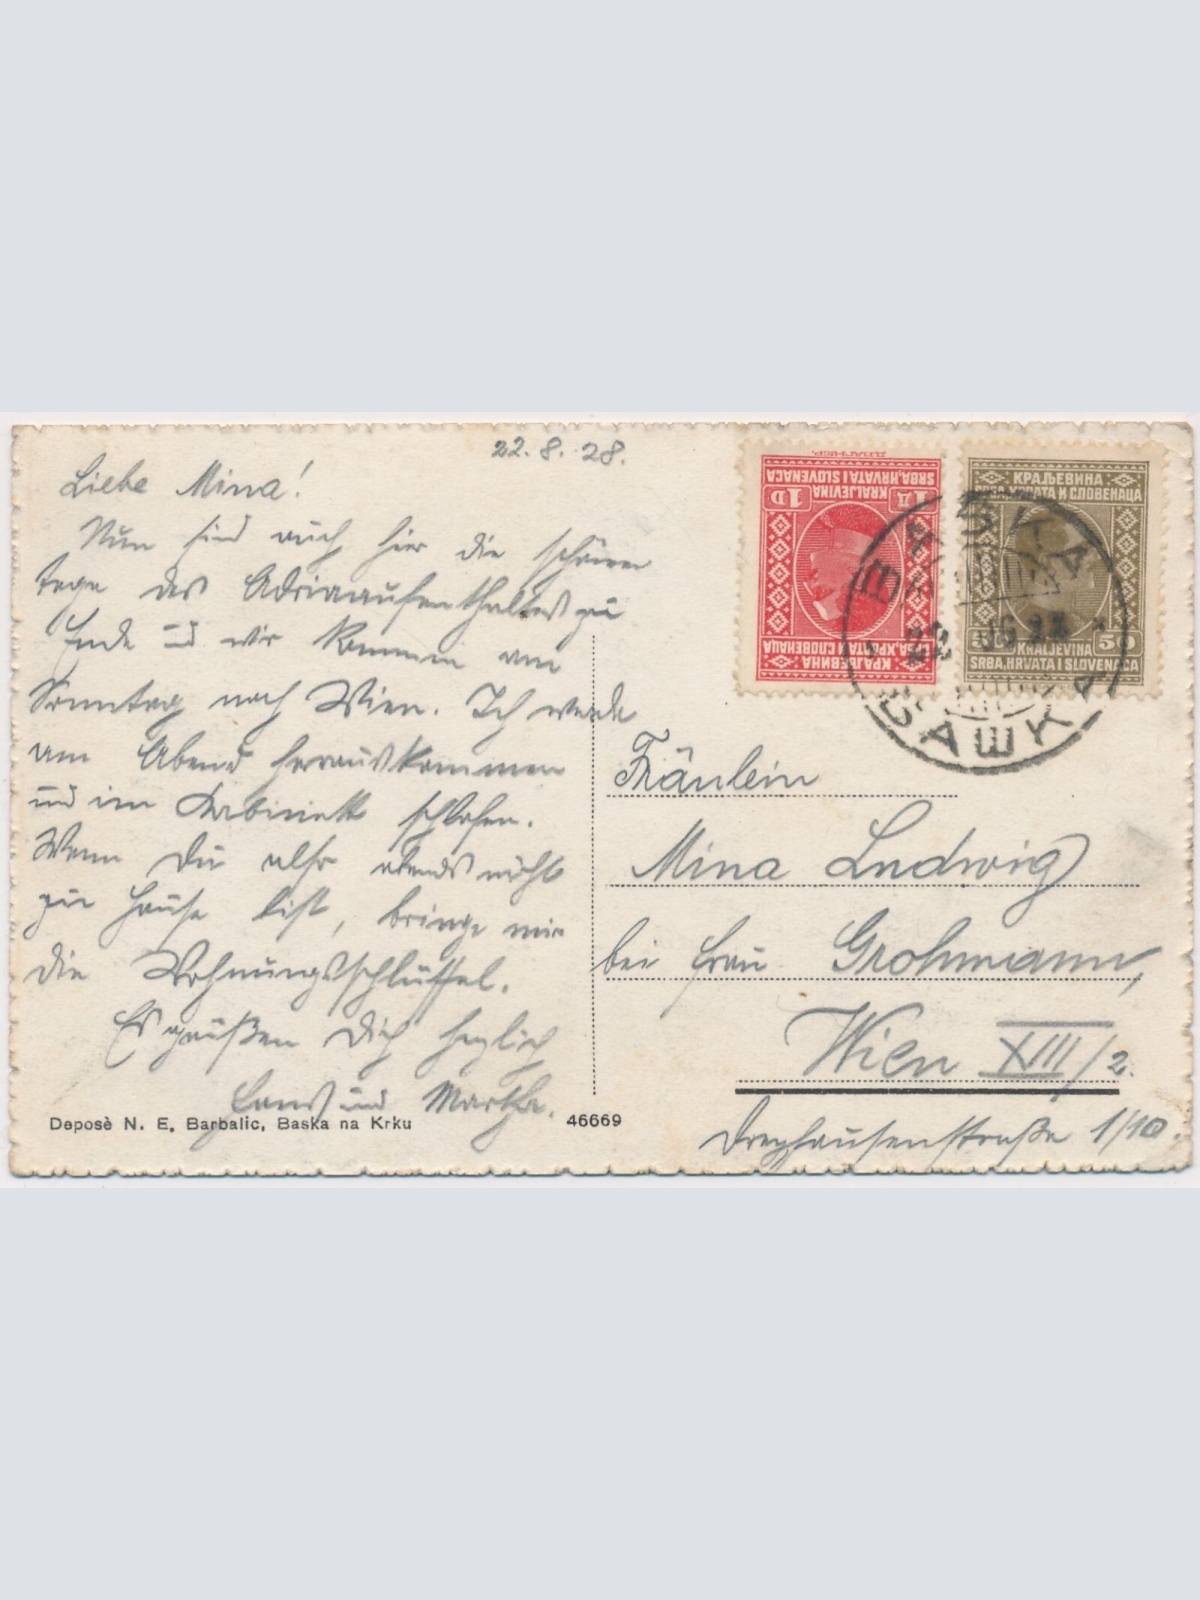 22.8.28.
Liebe Mina!
Nun sind auch hier die schönen
Tage des Adriaaufenthaltes zu
Ende und wir kommen am
Sonntag nach Wien. Ich werde
am Abend herauskommen
und im Kabinett schlafen.
Wenn Du also abends nicht
zu Hause bist, bringe mir
die Wohnungsschlüssel.
Es grüßen Dich herzlich
und Martha.
Deposè N. E. Barbalic, Baska na Krku
46669
1D 1Д
KRALJEVINA
SRBA, HRVATA I SLOVENACA
КРАЉЕВИНА
СРБА, ХРВАТА И СЛОВЕНАЦА
КРАЉЕВИНА
СРБА, ХРВАТА И СЛОВЕНАЦА
KRALJEVINA
SRBA, HRVATA I SLOVENACA
Fräulein
Mina Ludwig
bei Frau Grohmann,
Wien XIII/2.
Dreyhausenstraße 1/10.